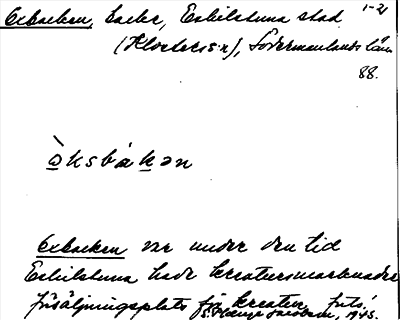 Oxbacken, backe, Eskilstuna stad 1-21
(Klosters sn), Södermanlands län
88.
òksbákən
Oxbacken var under den tid
Eskilstuna hade kreatursmarknader
försäljningsplats för kreaturen, forts!
1945.